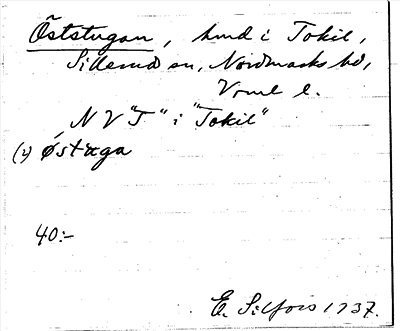 Öststugan, hmd i Tokil,
Sillerud sn, Nordmarks hd,
Vrml l.
N V "T" i "Tokil"
(v) østuga
40:-
E. Silfors 1937.